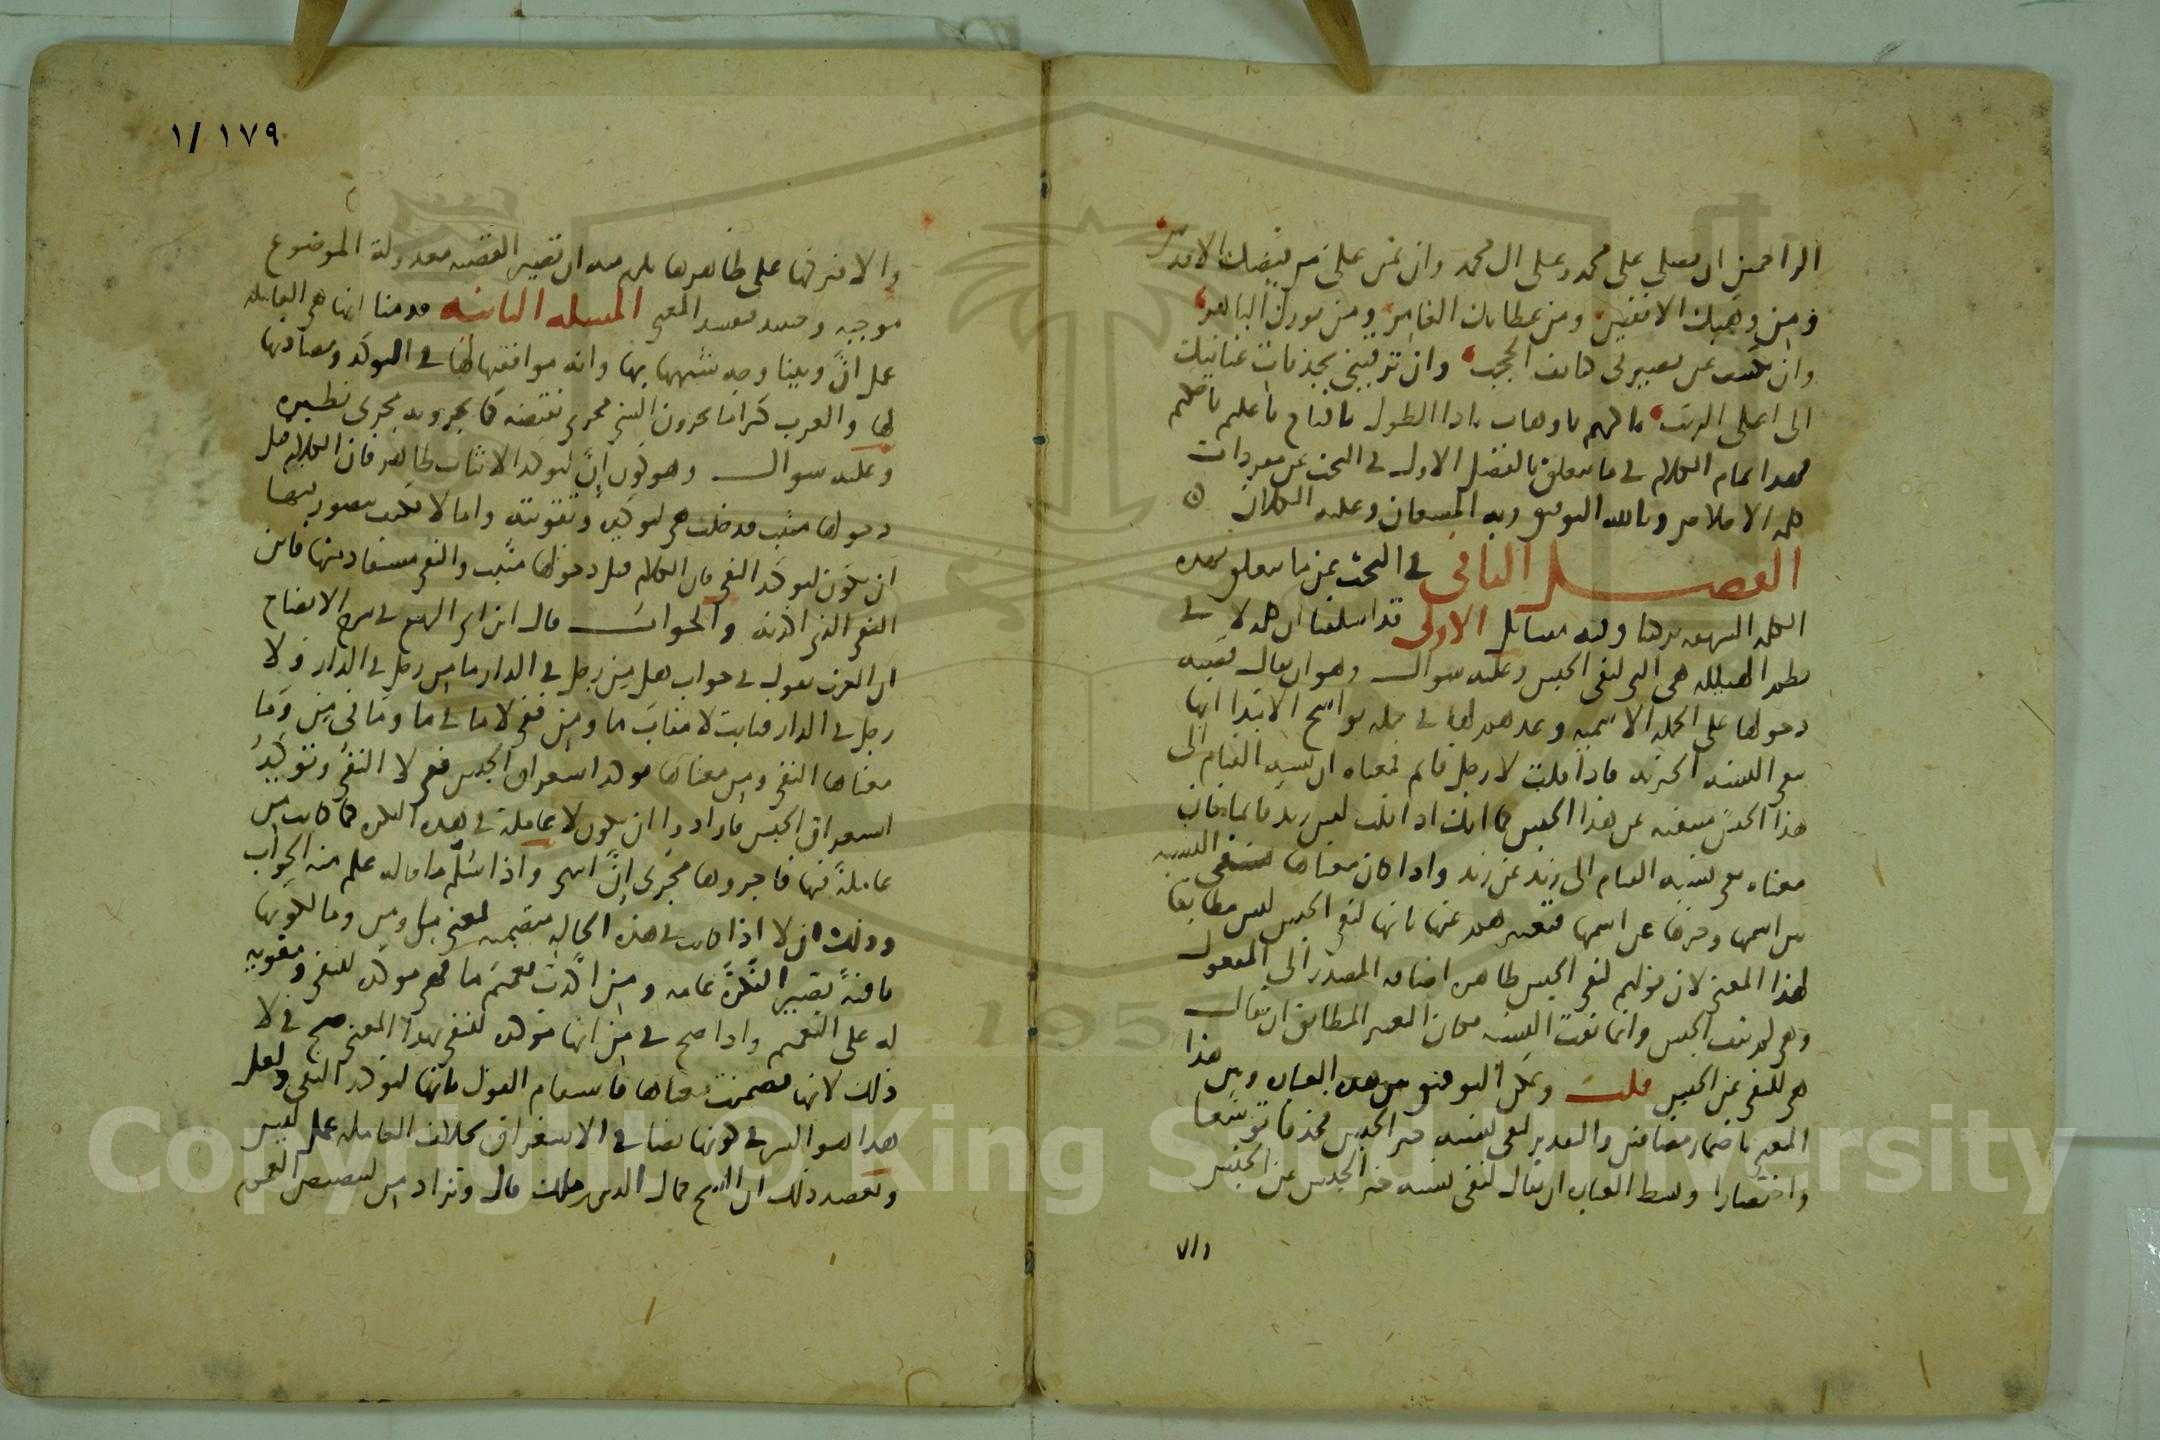 الراحمين ان تصلي على محمد وعلى ال محمد وان تمن علي من فيضك الاقدس
ومن وهبك الانفس ومن عطائك الغامر ومن نورك الباهر
وان تكشف عن بصيرتي هاتف الحجب وان ترقيني بجذبات عنايتك
الى اعلى الرتب يا وهاب يا ذا الطول يا فتاح يا عليم يا حليم
فهذا تمام الكلام في ما يتعلق بالفصل الاول في البحث عن مفردات
كلمة الاخلاص وبالله التوفيق وبه المستعان وعليه التكلان
الفصل الثاني في البحث عن ما يتعلق بهذه
الكلمة وفيه مسائل الاولى قد اسلفنا ان كلمة لا في
هي التي لنفي الجنس وعليه سوال وهو ان يقال قضية
دخولها على الجملة الاسمية وعدهم لها في جملة نواسخ الابتدا انها
نفي النسبة الخبرية فاذا قلت لا رجل قائم فمعناه ان نسبة القيام الى
هذا الجنس منتفية عن هذا الجنس كما انك اذا قلت ليس زيد قائما فان
معناه نفي نسبة القيام الى زيد عن زيد واذا كان معناها نفي النسبة
بين اسمها وخبرها عن اسمها فتعبيرهم عنها بانها لنفي الجنس ليس مطابقا
لهذا المعنى لان قولهم لنفي الجنس ظاهره اضافة المصدر الى المفعول
وهي لم تنف الجنس وانما نفت النسبة فكان التعبير المطابق ان يقال
هي للنفي عن الجنس قلت ويمكن التوفيق بين هذه العبارة وبين هذا
المعنى باضمار مضافين والتقدير لنفي نسبة خبر الجنس فحذفا توسعا
واختصارا وبسط العبارة ان يقال لنفي نسبة خبر الجنس عن الجنس
١٧٩ /١
والا فبقائها على ظاهرها يلزم منه ان تصير القضية معدولة الموضوع
موجبة وحينئذ يفسد المعنى المسئلة الثانية قدمنا انها هي العاملة
عمل انّ وبينا وجه شبهها بها وانه موافقتها لها في التوكد ومضادتها
لها والعرب كثيرا ما يجرون الشي مجرى نقيضه كما يجرونه مجرى نظيره
وعليه سوال وهو كون انّ لتوكد الاثبات ظاهر فان الكلام قبل
دخولها مثبت فدخلت هي لتوكده وتقويته واما لا فكيف يتصور فيها
ان تكون لتوكد النفي فان الكلام قبل دخولها مثبت والنفي مستفاد منها فاين
النفي الذي اكدته والجواب قال ابن ابي الربيع في شرح الايضاح
ان العرب تقول في جواب هل من رجل في الدار ما من رجل في الدار ولا
رجل في الدار فنابت لا مناب ما ومن ففي لا ما في ما وما في من وما
معناها النفي ومن معناها موكد استغراق الجنس ففي لا النفي وتوكيد
استغراق الجنس فارادوا ان تكون لا عاملة في هذه النكرة كما كانت من
عاملة فيها فاجروها مجرى انّ اسمي واذا سلم ما قاله علم منه الجواب
وذلك ان لا اذا كانت في هذه الحالة متضمنة لمعنى ما ومن وما لكونها
نافية تصير النكرة عامة ومن اكدت تعميم ما فهي موكدة للنفي ومقوية
له على التعميم واذا صح في من انها موكدة للنفي بهذا المعنى صح في لا
ذلك لانها تضمنت معناها فاستقام القول بانها لتوكد النفي ولعل
هذا هو السر في كونها نصا في الاستغراق بخلاف العاملة عمل ليس
ويعضد ذلك ان الشيخ جمال الدين بن مالك قال وتزاد من لتنصيص العموم